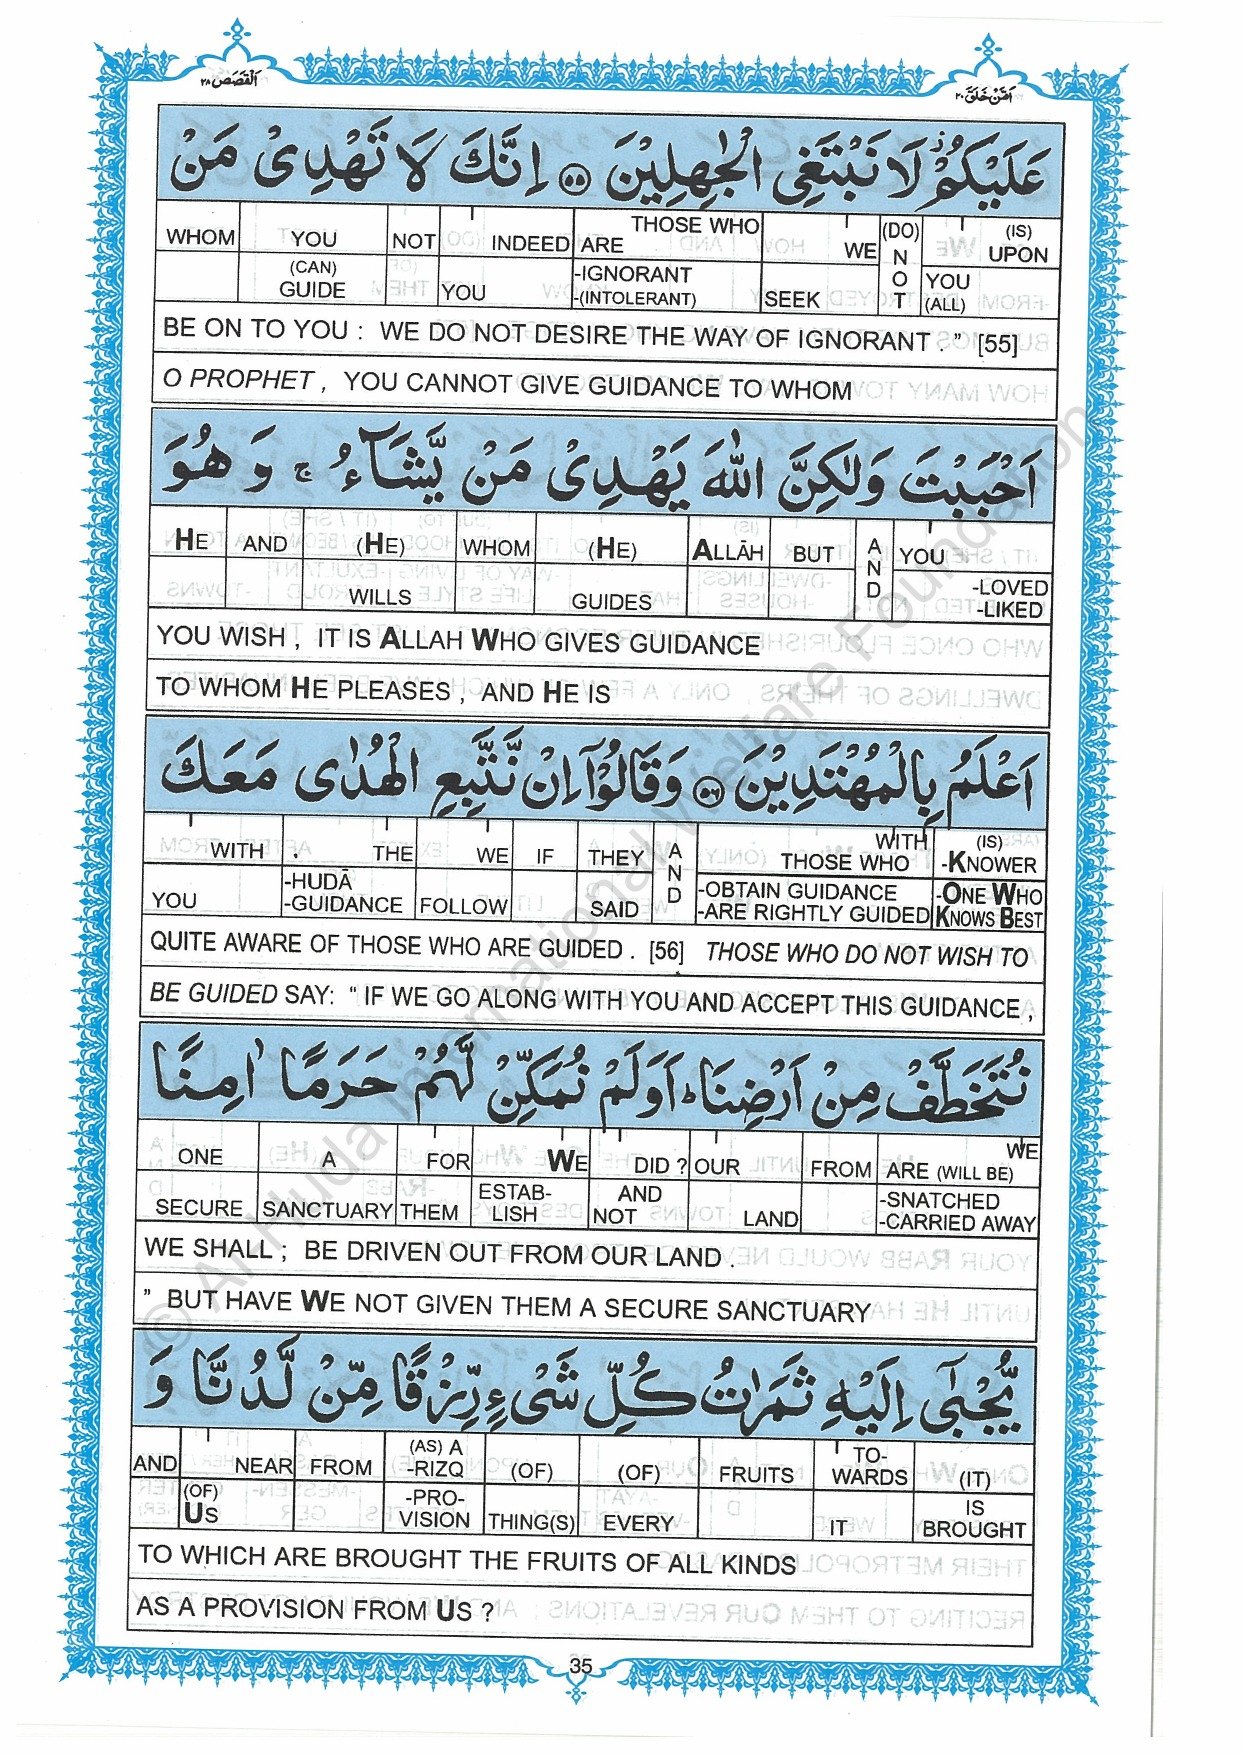 اَلْقَصَص ٢٨
اَمَّنْ خَلَقَ ٢٠
عَلَيْكُمْ لَا نَبْتَغِى الْجٰهِلِيْنَ ۝٥٥ اِنَّكَ لَا تَهْدِىْ مَنْ
WHOM YOU NOT INDEED THOSE WHO ARE WE (DO) NOT (IS) UPON
(CAN) GUIDE YOU -IGNORANT -(INTOLERANT) SEEK YOU (ALL)
BE ON TO YOU : WE DO NOT DESIRE THE WAY OF IGNORANT . ” [55]
O PROPHET , YOU CANNOT GIVE GUIDANCE TO WHOM
اَحْبَبْتَ وَلٰكِنَّ اللّٰهَ يَهْدِىْ مَنْ يَّشَآءُ ۚ وَهُوَ
HE AND (HE) WHOM (HE) ALLĀH BUT AND YOU
WILLS GUIDES -LOVED -LIKED
YOU WISH , IT IS ALLAH WHO GIVES GUIDANCE
TO WHOM HE PLEASES , AND HE IS
اَعْلَمُ بِالْمُهْتَدِيْنَ ۝٥٦ وَقَالُوْٓا اِنْ نَّتَّبِعِ الْهُدٰى مَعَكَ
WITH THE WE IF THEY AND WITH THOSE WHO (IS) -KNOWER
YOU -HUDĀ -GUIDANCE FOLLOW SAID -OBTAIN GUIDANCE -ARE RIGHTLY GUIDED -ONE WHO KNOWS BEST
QUITE AWARE OF THOSE WHO ARE GUIDED . [56] THOSE WHO DO NOT WISH TO
BE GUIDED SAY: “ IF WE GO ALONG WITH YOU AND ACCEPT THIS GUIDANCE ,
نُتَخَطَّفْ مِنْ اَرْضِنَا ؕ اَوَلَمْ نُمَكِّنْ لَّهُمْ حَرَمًا اٰمِنًا
ONE A FOR WE DID ? OUR FROM WE ARE (WILL BE)
SECURE SANCTUARY THEM ESTAB- LISH AND NOT LAND -SNATCHED -CARRIED AWAY
WE SHALL ; BE DRIVEN OUT FROM OUR LAND .
” BUT HAVE WE NOT GIVEN THEM A SECURE SANCTUARY
يُّجْبٰٓى اِلَيْهِ ثَمَرٰتُ كُلِّ شَىْءٍ رِّزْقًا مِّنْ لَّدُنَّا وَ
AND NEAR FROM (AS) A -RIZQ (OF) (OF) FRUITS TO- WARDS (IT)
(OF) US -PRO- VISION THING(S) EVERY IT IS BROUGHT
TO WHICH ARE BROUGHT THE FRUITS OF ALL KINDS
AS A PROVISION FROM US ?
35
© Al-Huda International Welfare Foundation